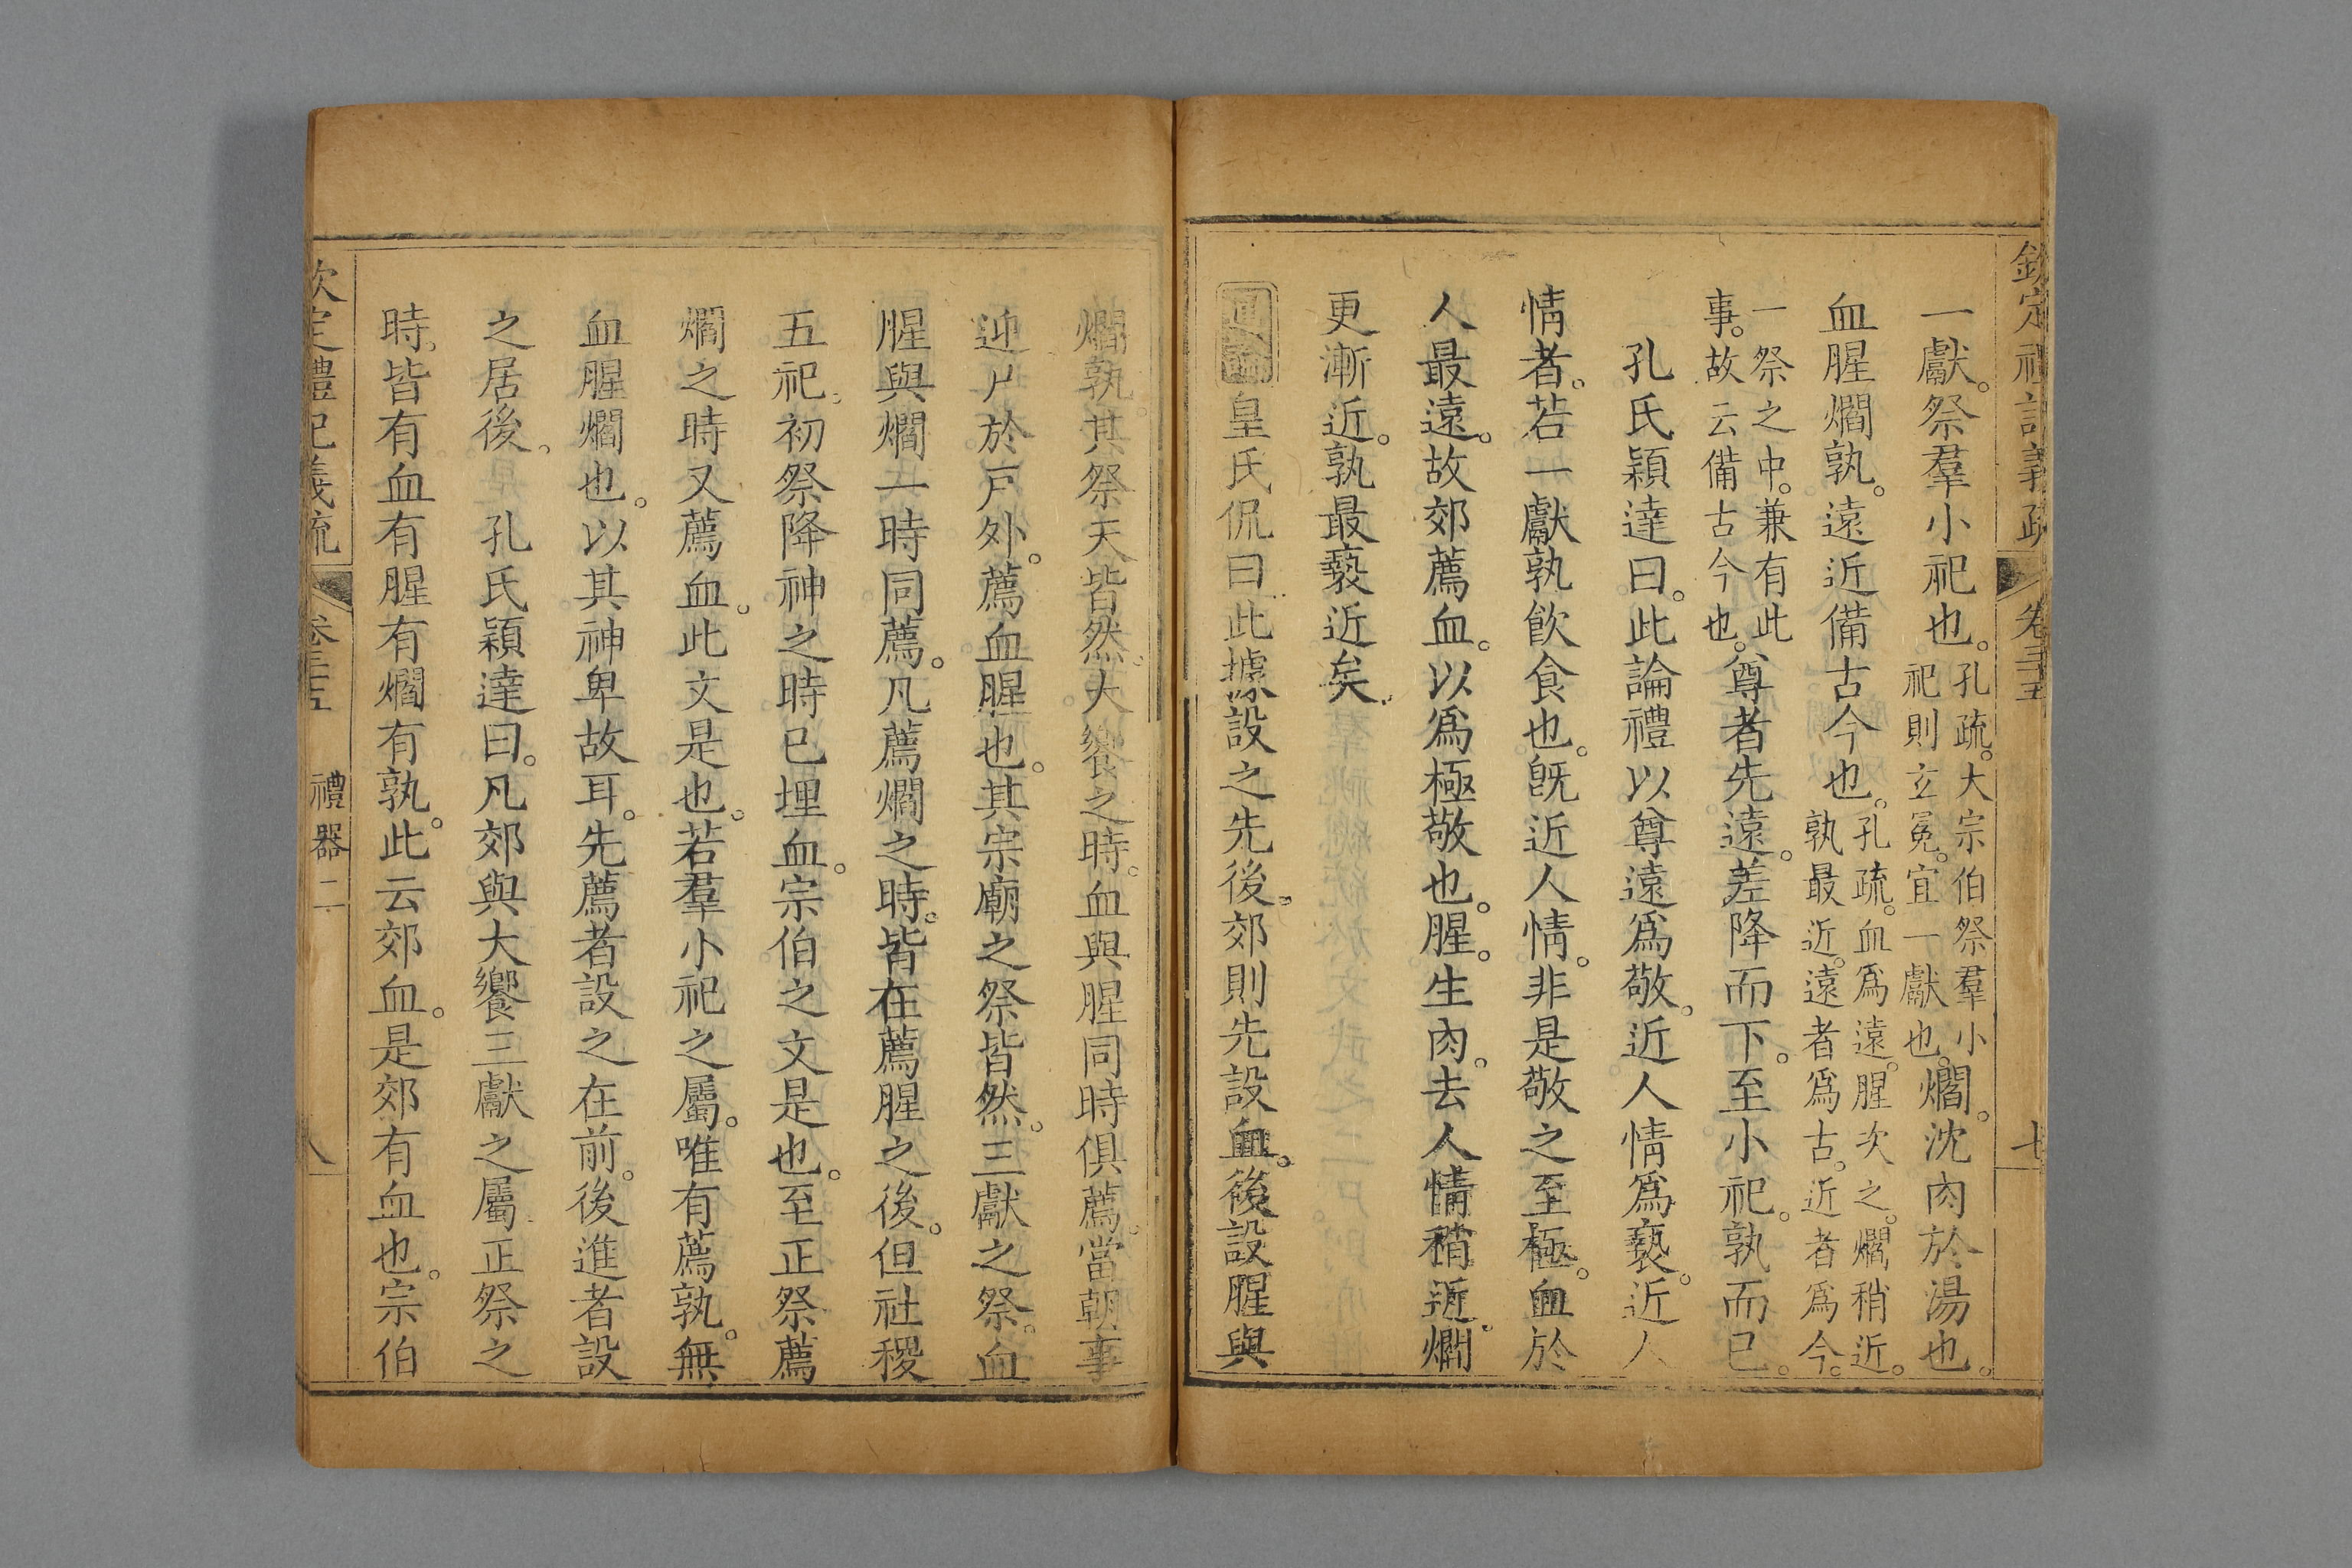 欽定禮記義疏 卷三十五 七
一獻。祭羣小祀也。孔疏。大宗伯祭羣小祀則玄冕。宜一獻也。爓。沈肉於湯也。
血腥爓孰。遠近備古今也。孔疏。血爲遠。腥次之。爓稍近。孰最近。遠者爲古。近者爲今。
一祭之中。兼有此事。故云備古今也。尊者先遠。差降而下。至小祀。孰而已。
孔氏穎達曰。此論禮以尊遠爲敬。近人情爲褻。近人
情者。若一獻孰飲食也。旣近人情。非是敬之至極。血於
人最遠。故郊薦血。以爲極敬也。腥。生肉。去人情稍近。爓
更漸近。孰最褻近矣。
通論 皇氏侃曰此據設之先後。郊則先設血。後設腥與
爓孰。其祭天皆然。大饗之時。血與腥同時俱薦。當朝事
迎尸於戶外。薦血腥也。其宗廟之祭皆然。三獻之祭。血
腥與爓一時同薦。凡薦爓之時。皆在薦腥之後。但社稷
五祀。初祭降神之時已埋血。宗伯之文是也。至正祭薦
爓之時又薦血。此文是也。若羣小祀之屬。唯有薦孰。無
血腥爓也。以其神卑故耳。先薦者設之在前。後進者設
之居後。 孔氏穎達曰。凡郊與大饗三獻之屬正祭之
時。皆有血有腥有爓有孰。此云郊血。是郊有血也。宗伯
欽定禮記義疏 卷三十五 禮器二 八